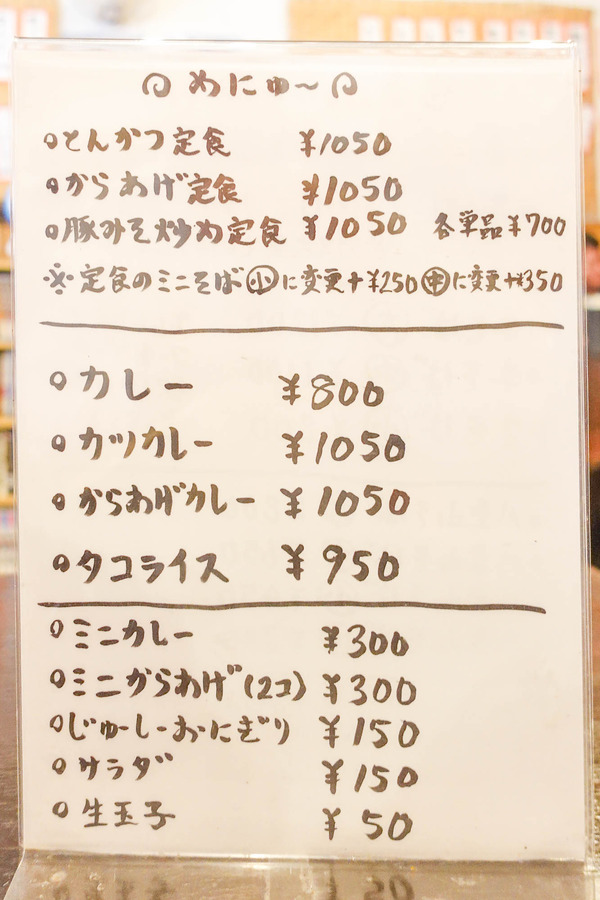 めにゅ〜
とんかつ定食 ¥1050
からあげ定食 ¥1050
豚みそ炒め定食 ¥1050 各単品¥700
※定食のミニそば小に変更+¥250 中に変更+¥350
カレー ¥800
カツカレー ¥1050
からあげカレー ¥1050
タコライス ¥950
ミニカレー ¥300
ミニからあげ(2コ) ¥300
じゅーしーおにぎり ¥150
サラダ ¥150
生玉子 ¥50